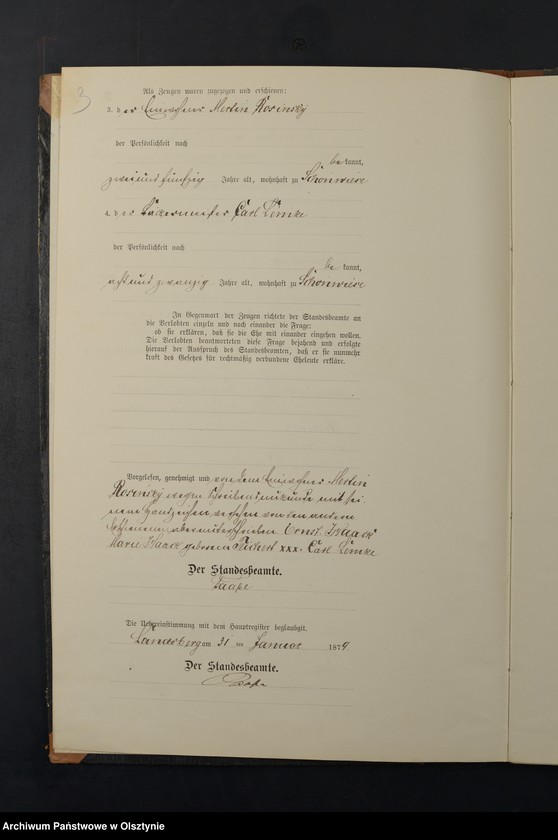 3
Als Zeugen waren zugezogen und erschienen:
3. der Einwohner Martin Rosinsky
der Persönlichkeit nach
be kannt,
zweiundfünfzig Jahre alt, wohnhaft zu Schönwiese
4. der Carl Lemke
der Persönlichkeit nach
be kannt,
achtundzwanzig Jahre alt, wohnhaft zu Schönwiese
In Gegenwart der Zeugen richtete der Standesbeamte an
die Verlobten einzeln und nach einander die Frage:
ob sie erklären, daß sie die Ehe mit einander eingehen wollen.
Die Verlobten beantworteten diese Frage bejahend und erfolgte
hierauf der Ausspruch des Standesbeamten, daß er sie nunmehr
kraft des Gesetzes für rechtmäßig verbundene Eheleute erkläre.
Vorgelesen, genehmigt und von dem Einwohner Martin
Rosinsky wegen Schreibensunkunde mit sei
nem Handzeichen versehen von den anderen
Erschienenen unterschrieben Ernst
Marie geborene xxx. Carl Lemke
Der Standesbeamte.
Die Uebereinstimmung mit dem Hauptregister beglaubigt.
Landsberg am 31 ten Januar 1879
Der Standesbeamte.
Archiwum Państwowe w Olsztynie